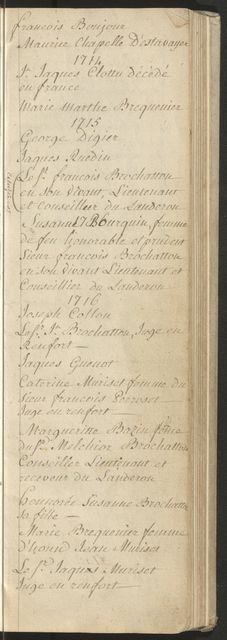 francois Bonjour
Maurice Chapelle D'estavayer
1714
Jn Jaques Clottu décédé
en france
Marie Marthe Brequenier
1715
George Digier
Jaques Ruedin
Le Sr. francois Brochatton
en son vivant, Lieutenant
et Conseiller du Landeron
Susanne Bourguin, femme
de feu honorable et prudent
Sieur francois Brochatton
en son vivant Lieutenant et
Conseillier du Landeron
1716
Joseph Collon
Le Sr. Jn Brochatton, Juge en
Renfort
Jaques Guenot
Caterine Muriset femme du
Sieur francois
Juge en renfort
Margueritte Bozin femme
du Sr. Melchior Brochatton
Conseillier Lieutenant et
receveur du Landeron
honnorée Susanne Brochatton
sa fille
Marie Brequenier femme
d'honn Jean Muriset
Le Sr. Jaques Muriset
Juge en renfort